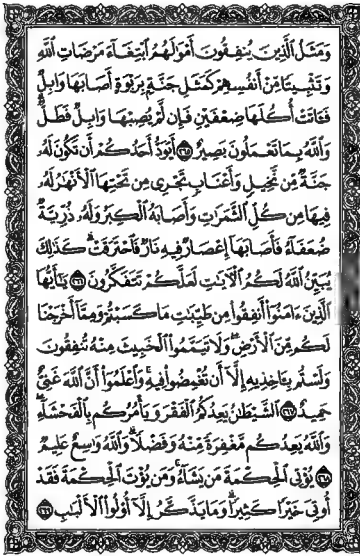 وَمَثَلُ ٱلَّذِينَ يُنفِقُونَ أَمْوَٰلَهُمُ ٱبْتِغَآءَ مَرْضَاتِ ٱللَّهِ
وَتَثْبِيتًا مِّنْ أَنفُسِهِمْ كَمَثَلِ جَنَّةٍۭ بِرَبْوَةٍ أَصَابَهَا وَابِلٌ
فَـَٔاتَتْ أُكُلَهَا ضِعْفَيْنِ فَإِن لَّمْ يُصِبْهَا وَابِلٌ فَطَلٌّ
وَٱللَّهُ بِمَا تَعْمَلُونَ بَصِيرٌ ۝٢٦٥ أَيَوَدُّ أَحَدُكُمْ أَن تَكُونَ لَهُۥ
جَنَّةٌ مِّن نَّخِيلٍ وَأَعْنَابٍ تَجْرِى مِن تَحْتِهَا ٱلْأَنْهَٰرُ لَهُۥ
فِيهَا مِن كُلِّ ٱلثَّمَرَٰتِ وَأَصَابَهُ ٱلْكِبَرُ وَلَهُۥ ذُرِّيَّةٌ
ضُعَفَآءُ فَأَصَابَهَآ إِعْصَارٌ فِيهِ نَارٌ فَٱحْتَرَقَتْ ۗ كَذَٰلِكَ
يُبَيِّنُ ٱللَّهُ لَكُمُ ٱلْـَٔايَٰتِ لَعَلَّكُمْ تَتَفَكَّرُونَ ۝٢٦٦ يَٰٓأَيُّهَا
ٱلَّذِينَ ءَامَنُوٓا۟ أَنفِقُوا۟ مِن طَيِّبَٰتِ مَا كَسَبْتُمْ وَمِمَّآ أَخْرَجْنَا
لَكُم مِّنَ ٱلْأَرْضِ ۖ وَلَا تَيَمَّمُوا۟ ٱلْخَبِيثَ مِنْهُ تُنفِقُونَ
وَلَسْتُم بِـَٔاخِذِيهِ إِلَّآ أَن تُغْمِضُوا۟ فِيهِ ۚ وَٱعْلَمُوٓا۟ أَنَّ ٱللَّهَ غَنِىٌّ
حَمِيدٌ ۝٢٦٧ ٱلشَّيْطَٰنُ يَعِدُكُمُ ٱلْفَقْرَ وَيَأْمُرُكُم بِٱلْفَحْشَآءِ ۖ
وَٱللَّهُ يَعِدُكُم مَّغْفِرَةً مِّنْهُ وَفَضْلًا ۗ وَٱللَّهُ وَٰسِعٌ عَلِيمٌ
۝٢٦٨ يُؤْتِى ٱلْحِكْمَةَ مَن يَشَآءُ ۚ وَمَن يُؤْتَ ٱلْحِكْمَةَ فَقَدْ
أُوتِىَ خَيْرًا كَثِيرًا ۗ وَمَا يَذَّكَّرُ إِلَّآ أُو۟لُوا۟ ٱلْأَلْبَٰبِ ۝٢٦٩